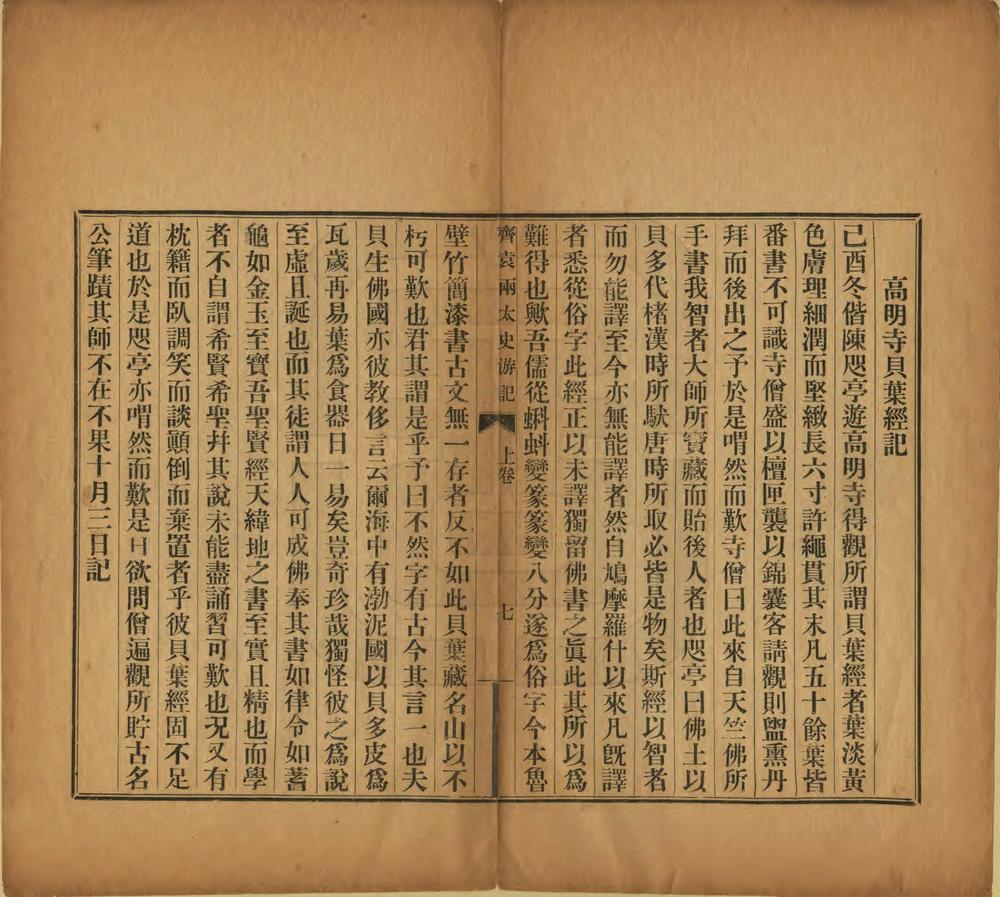 高明寺貝葉經記
己酉冬偕陳咫亭遊高明寺得觀所謂貝葉經者葉淡黃
色膚理細潤而堅緻長六寸許繩貫其末凡五十餘葉皆
番書不可識寺僧盛以檀匣襲以錦囊客請觀則盥熏丹
拜而後出之予於是喟然而歎寺僧曰此來自天竺佛所
手書我智者大師所寶藏而貽後人者也咫亭曰佛土以
貝多代楮漢時所馱唐時所取必皆是物矣斯經以智者
而勿能譯至今亦無能譯者然自鳩摩羅什以來凡既譯
者悉從俗字此經正以未譯獨留佛書之眞此其所以爲
難得也歟吾儒從蝌蚪變篆篆變八分遂爲俗字今本魯
齊袁兩太史游記 上卷 七
壁竹簡漆書古文無一存者反不如此貝葉藏名山以不
朽可歎也君其謂是乎予曰不然字有古今其言一也夫
貝生佛國亦彼教侈言云爾海中有渤泥國以貝多皮爲
瓦歲再易葉爲食器日一易矣豈奇珍哉獨怪彼之爲說
至虛且誕也而其徒謂人人可成佛奉其書如律令如蓍
龜如金玉至寶吾聖賢經天緯地之書至實且精也而學
者不自謂希賢希聖幷其說未能盡誦習可歎也況又有
枕籍而臥調笑而談顚倒而棄置者乎彼貝葉經固不足
道也於是咫亭亦喟然而歎是日欲問僧遍觀所貯古名
公筆蹟其師不在不果十月三日記